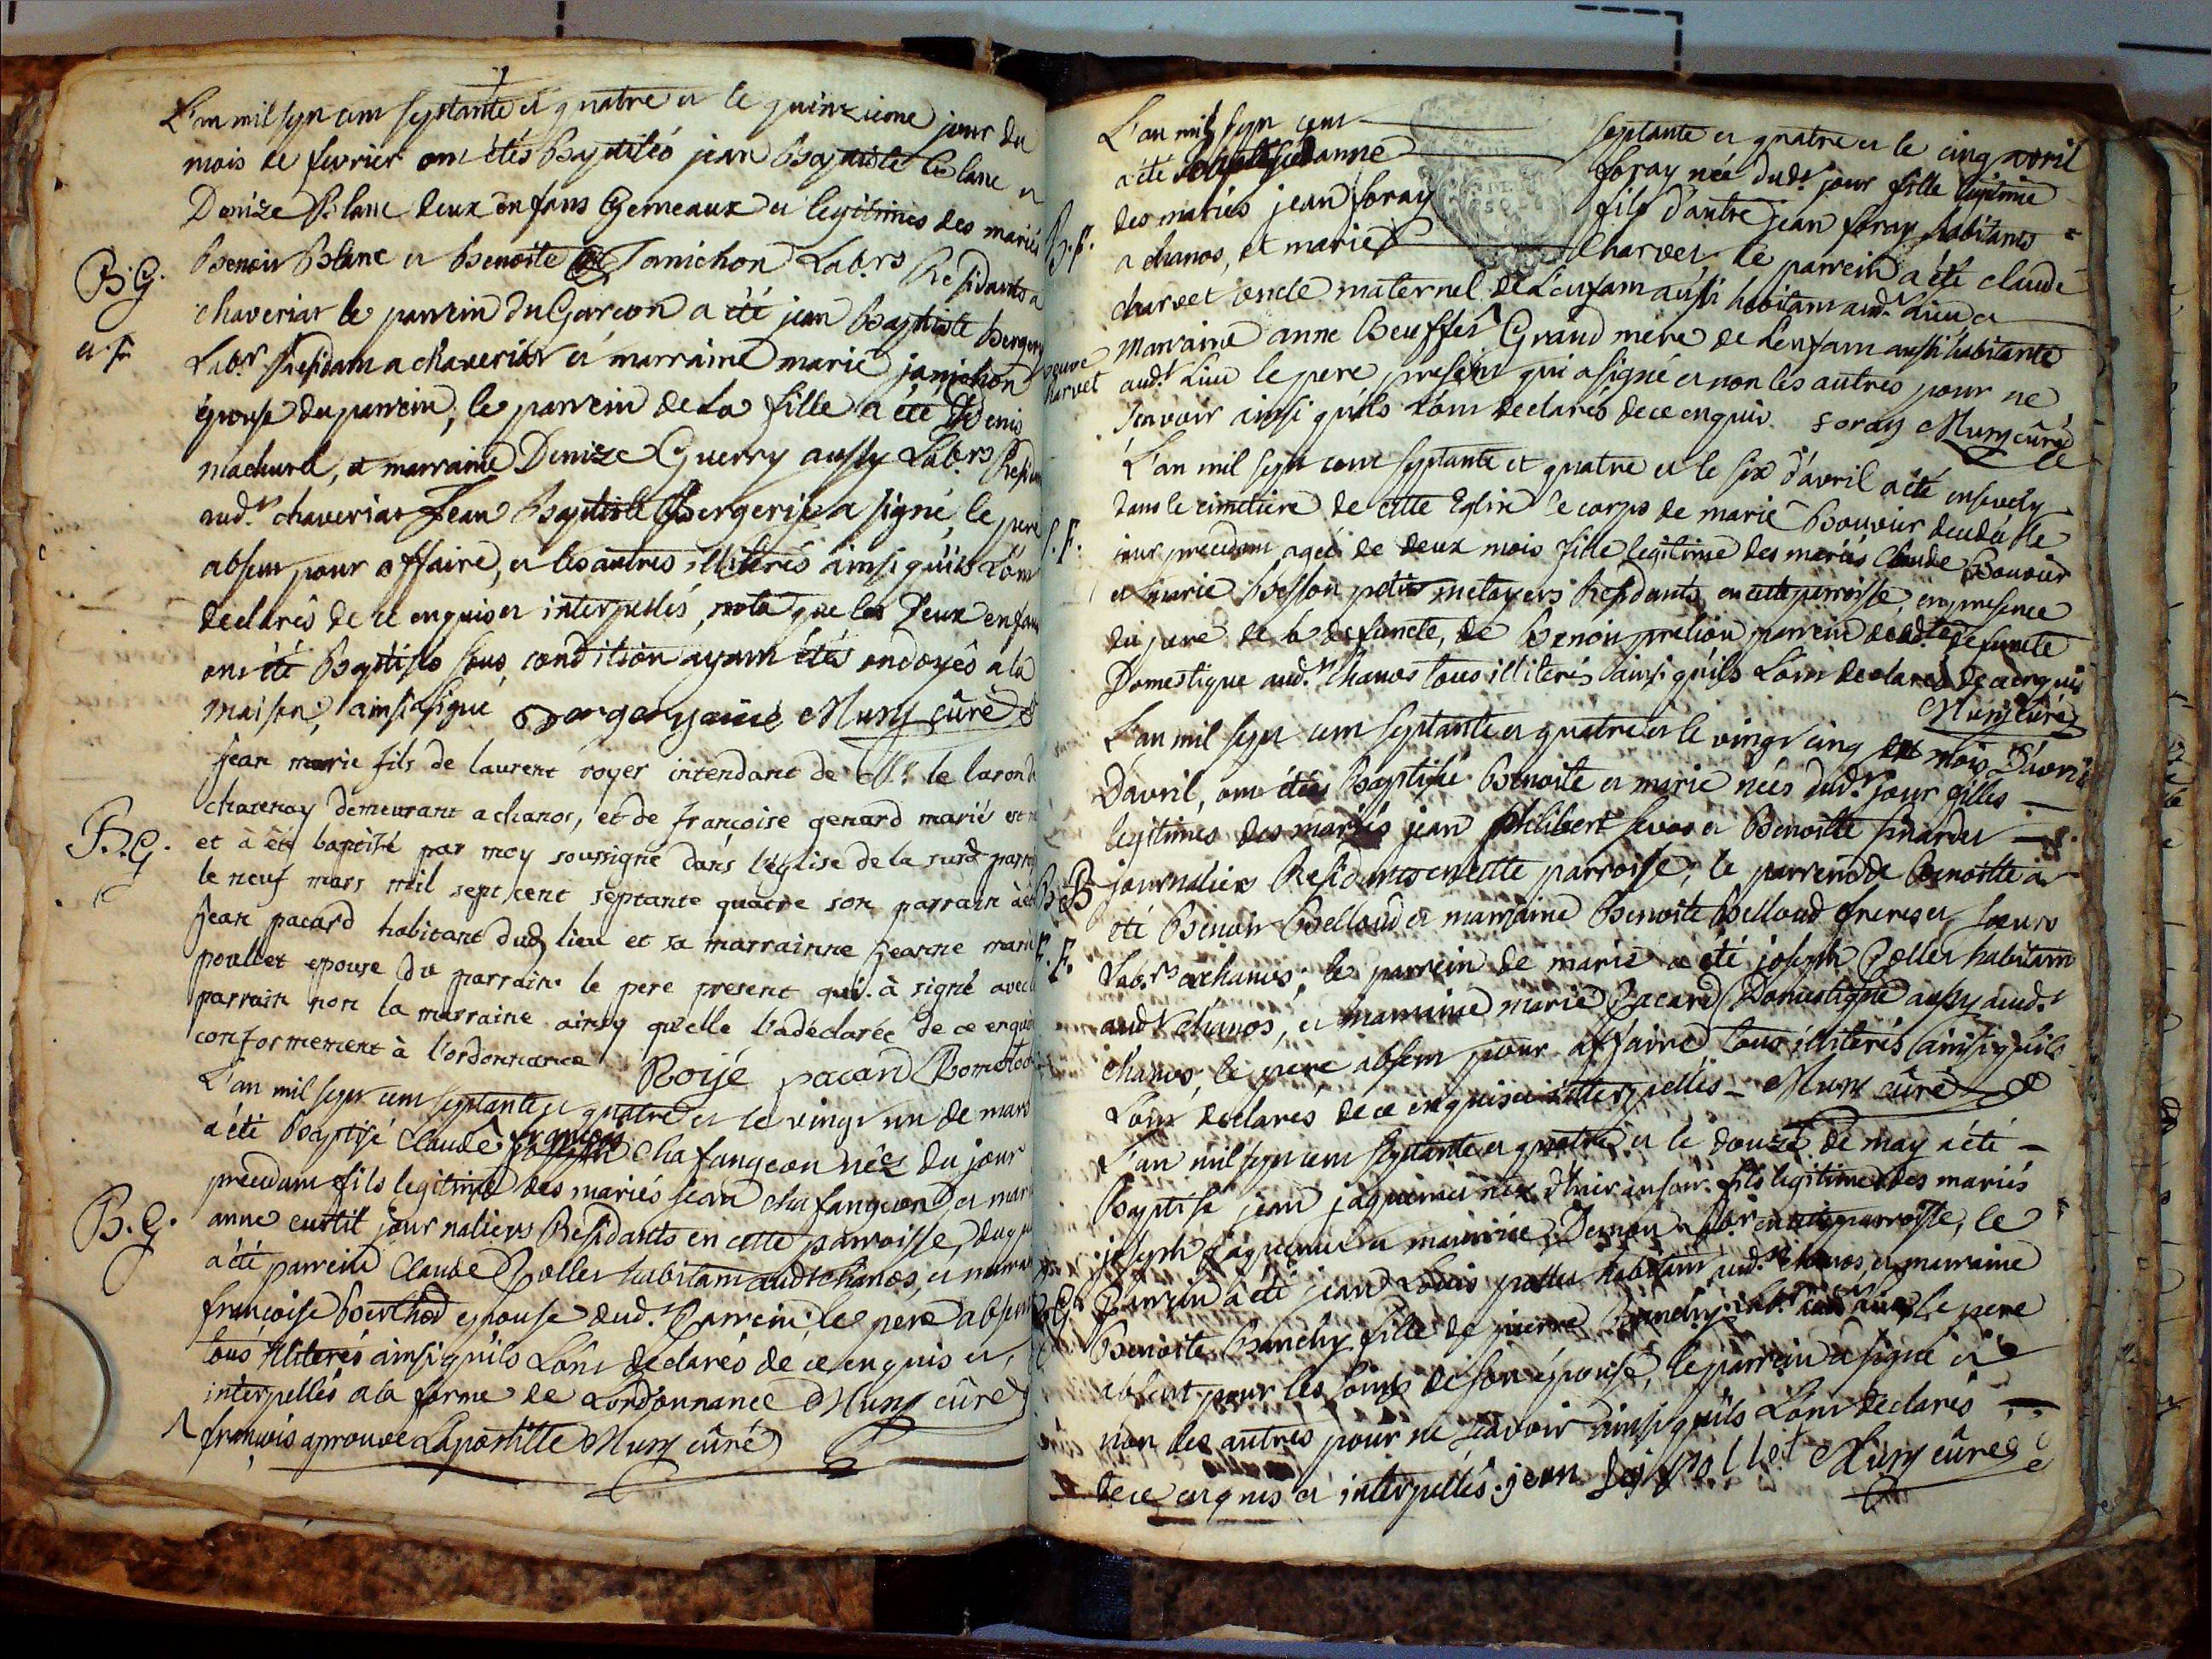 L'an mil sept cent septante et quatre et le quinzieme jour du
mois de fevrier ont étés Baptisés jean Baptiste Blanc et
Denize Blanc deux enfans Gemeaux et legitimes des mariés
B.G. Benoit Blanc et Benoite Janichon Lab.rs Residants a
chaveriat le parrein du Garcon a été jean Baptiste Bergery
et F. Lab.r Residant a chaveriat et marraine marie janichon
épouse du parrein, le parrein de la fille a été Denis
machurd, et marraine Denize Guerry aussy Lab.rs Resid
aud.t chaveriat Jean Baptiste Bergerise a signé, le pere
absent pour affaire, et les autres illiterés ainsi quils L'ont
declarés de ce enquis et interpellés, nota que les deux enfans
ont été Baptisés sous condition ayant étés ondoyés a la
maison, ainsi a signé Bergery ainé Mury curé
jean marie fils de laurent royer intendant de Mr. le baron de
chatenay demeurant a chanos, et de françoise genard marié est
B.G. et à été baptisé par moy soussigné dans l'église de la susd parr
le neuf mars mil sept cent septante quatre son parrain à été
jean pacard habitant dud lieu et sa marrainne jeanne marie
poullet epouse du parrain le pere present qui à signé avec
parrain non la marraine ainsy quelle l'a déclarée de ce enquis
conformement à l'ordonnance Roijé pacard
L'an mil sept cent septante et quatre et le vingt un de mars
a été Baptisé Claude françois Chafangeon née du jour
précedant fils legitime des mariés jean chafangeon et mar
B.G. anne curtil journaliers Residants en cette parroisse, duq
a été parrein Claude Pollet habitant aud.t chanos, et marrai
francoise Berthod epouse dud.t Parrein, le pere absent
tous illiterés ainsi quils L'ont declarés de ce enquis et
interpellés a la forme de Lordonnance Mury curé
francois aprouve Lapostille Mury curé
L'an mil sept cent septante et quatre et le cinq avril
a été anne foray née dud.t jour fille legitime
B.F. des mariés jean foray fils d'autre jean foray habitants
a chanos, et marie Charvet le parrein a été claude
charvet oncle maternel de L'enfant aussi habitant aud.t Lieu et
marraine anne Beuffet Grand mere de L'enfant aussi habitante
veuve charvet
aud.t Lieu le pere present qui a signé et non les autres pour ne
scavoir ainsi quils L'ont declarés de ce enquis foray Mury curé
L'an mil sept cent septante et quatre et le six d'avril a été ensevely
dans le cimetiere de cette Eglise le corps de marie Bouvier decedé le
S.F. jour précedant agée de deux mois fille legitime des mariés Claude Bouvier
et marie Besson petits metayers Residants en cette parroisse, en presence
du pere de la defuncte, de Benoit parrein de lad.te defuncte
Domestique aud.t chanos tous illiterés ainsi quils L'ont declarés de ce enquis
Mury curé
L'an mil sept cent septante et quatre et le vingt cinq du mois d'avril
D'avril, ont étées Baptisé Benoite et marie nées dud.t jour filles
legitimes des mariés jean philibert et Benoitte
journaliers Residants en cette parroisse, le parrein de Benoitte a
été Benoit Belloud et marraine Benoite Belloud freres et soeurs
F.F. Lab.rs a chanos, le parrein de marie a été joseph Pollet habitant
aud.t chanos, et marraine marie Pacard Domestique aussy aud.t
chanos, le pere absent pour affaire, tous illiterés ainsi quils
L'ont declarés de ce enquis et interpellés Mury curé
L'an mil sept cent septante et quatre et le douze de may a été
Baptisé jean jaquemet né d'hier au soir fils legitime des mariés
joseph jaquemet et mauricie Lab.r en cette parroisse, le
B.G. Parrein a été jean Louis pollet habitant aud.t chanos, et marraine
Benoite Banchy fille de pierre Banchy le pere
absent pour les soins de son épouse, le parrein a signé et
non les autres pour ne scavoir ainsi quils L'ont declarés
de ce enquis et interpellés. jean pollet Mury curé